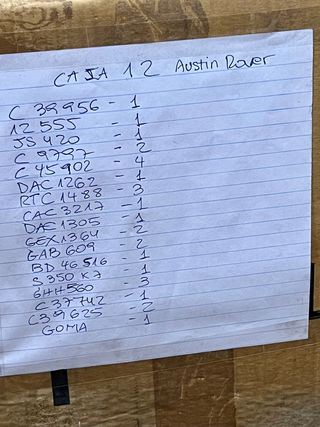 CAJA 12 Austin Rover
C 39956 - 1
12 555 - 1
JS 420 - 1
C 9797 - 2
C 45902 - 4
DAC 1262 - 1
RTC 1488 - 3
CAC 3217 - 1
DAC 1305 - 1
GEX 1364 - 2
GAB 609 - 2
BD 46516 - 1
S 350 K7 - 1
6HH560 - 3
C 37742 - 1
C39625 - 2
GOMA - 1